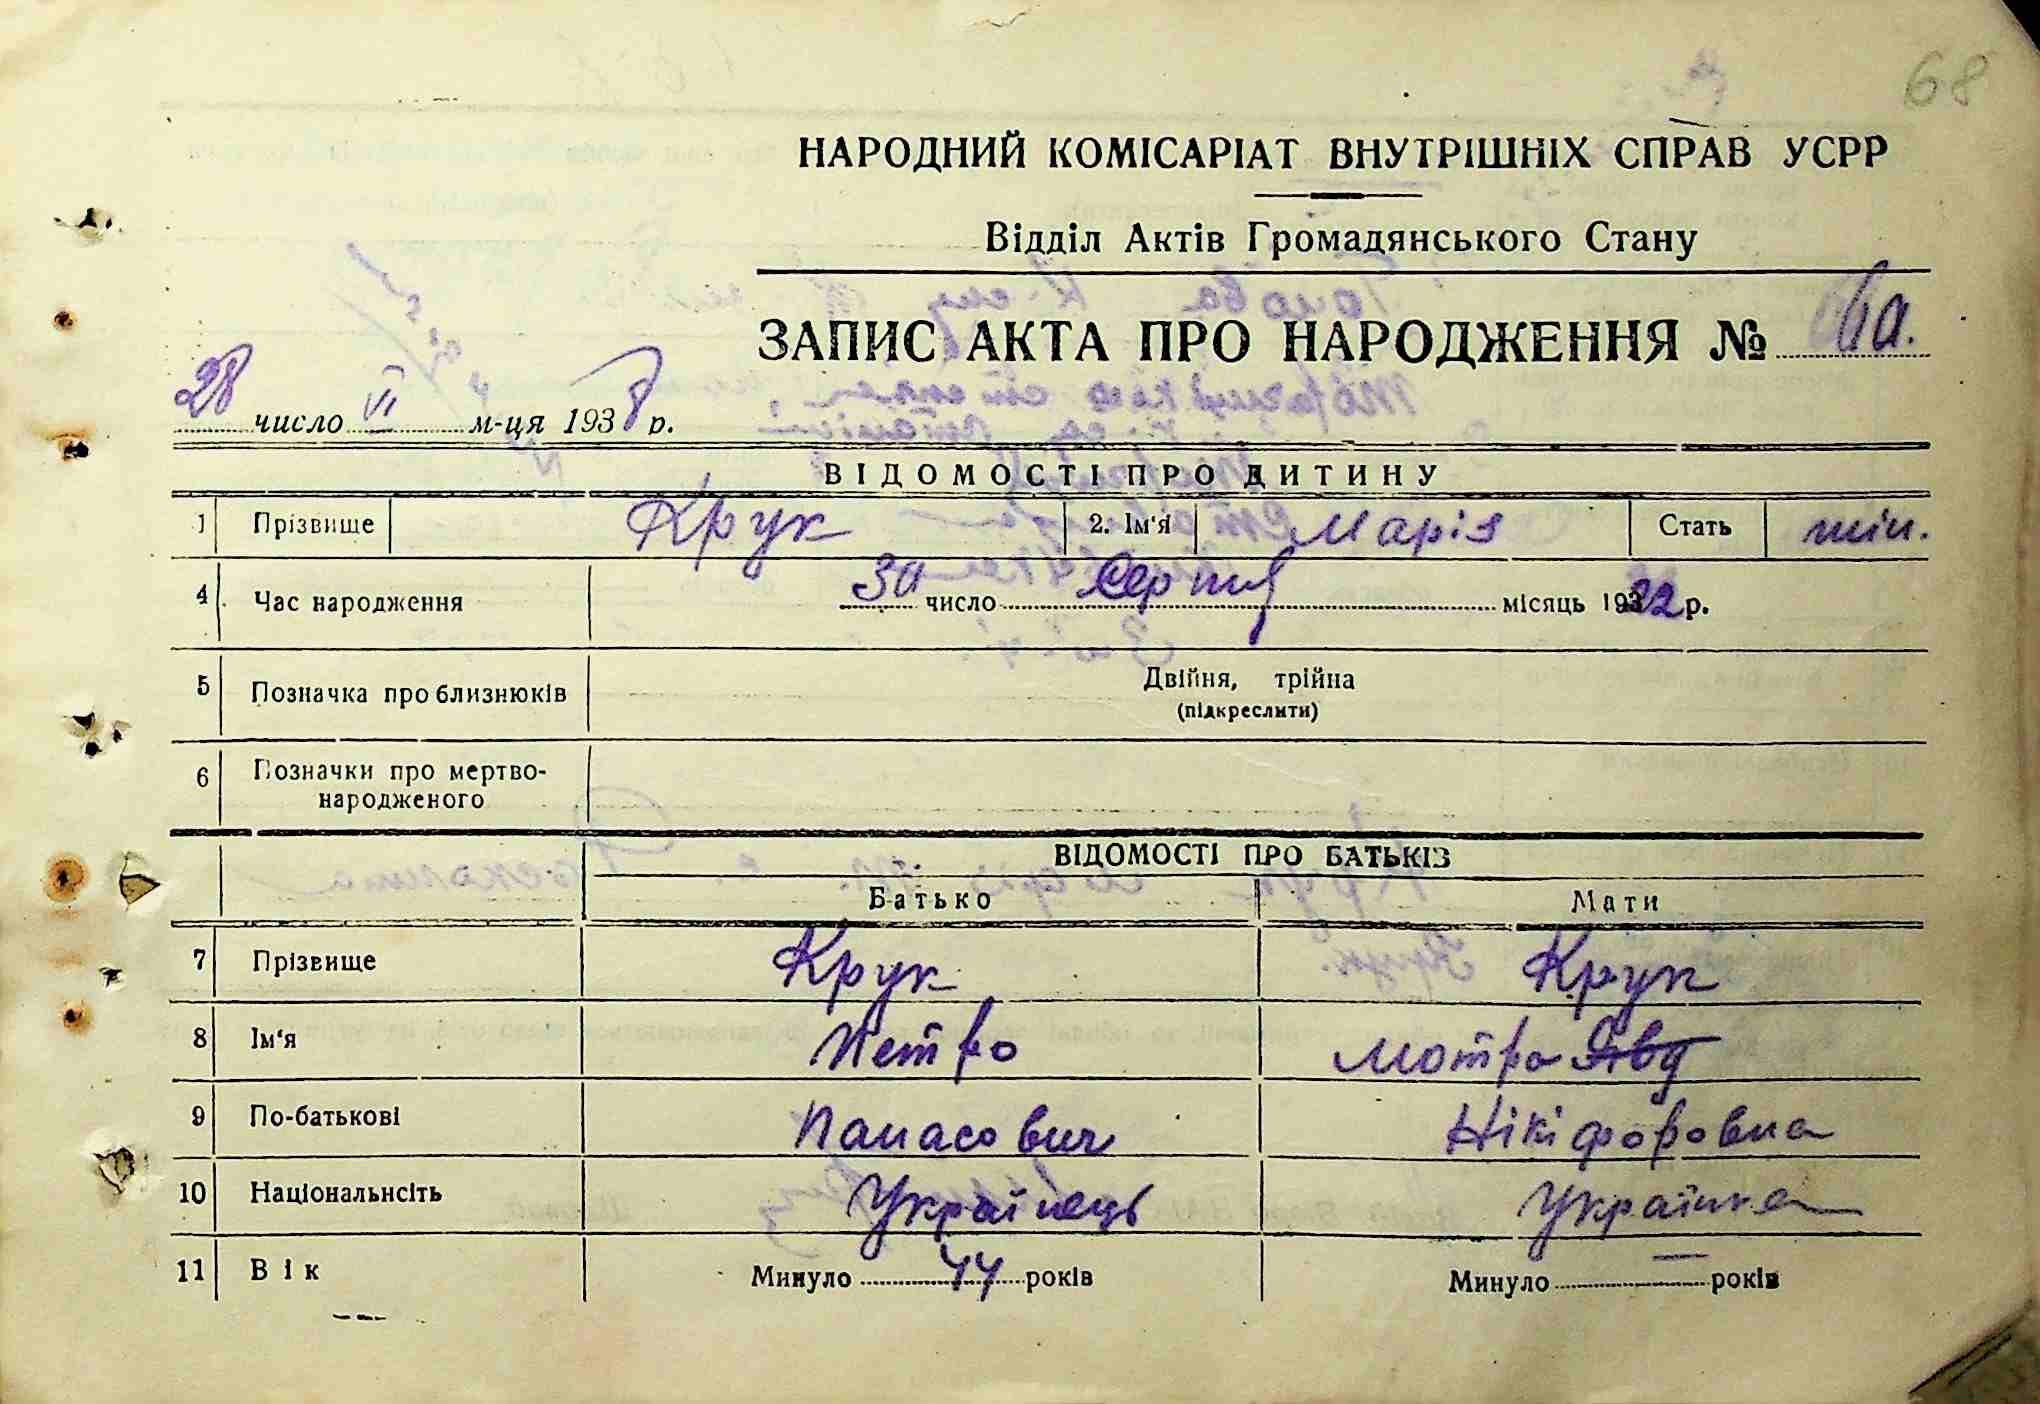 68
НАРОДНИЙ КОМІСАРІАТ ВНУТРІШНІХ СПРАВ УСРР
Відділ Актів Громадянського Стану
ЗАПИС АКТА ПРО НАРОДЖЕННЯ №
28 число VI м-ця 1938 р.
ВІДОМОСТІ ПРО ДИТИНУ
1 Прізвище Крук 2. Ім'я Марія Стать жін.
4 Час народження 30 Серпня число місяць 1922 р.
5 Позначка про близнюків Двійня, трійна
(підкреслити)
6 Позначки про мертво-
народженого
ВІДОМОСТІ ПРО БАТЬКІВ
Батько Мати
7 Прізвище Крук Крук
8 Ім'я Петро Мотра Явд
9 По-батькові Панасович Нікіфоровна
10 Національнсіть Українець Українка
11 Вік Минуло 44 років Минуло — років